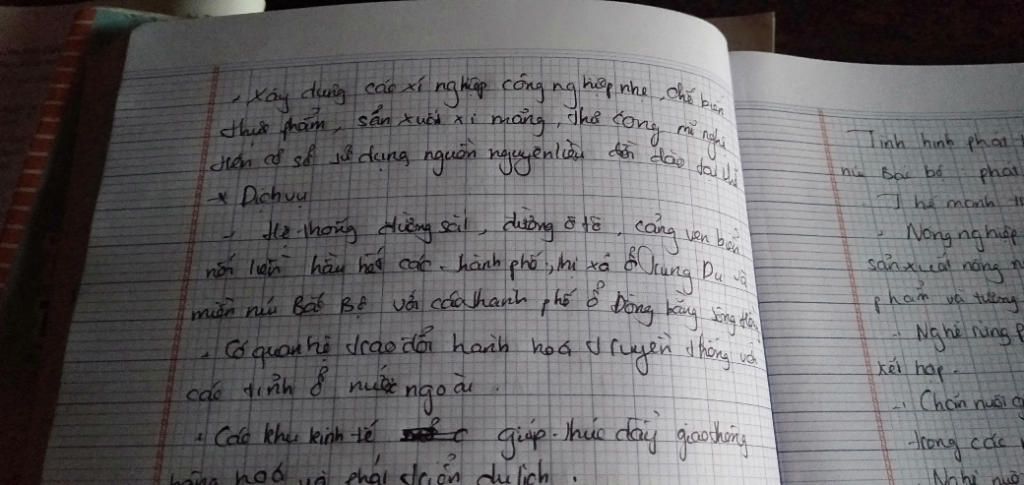 - Xây dựng các xí nghiệp công nghiệp nhẹ, chế biến
thực phẩm, sản xuất xi măng, thủ công mĩ nghệ
trên cơ sở sử dụng nguồn nguyên liệu dồi dào tại
* Dịch vụ
- Hệ thống đường sắt, đường ô tô, cảng ven biển
nối liền hầu hết các thành phố, thị xã ở Trung Du và
miền núi Bắc Bộ với các thành phố ở Đồng bằng sông Hồng
- Có quan hệ trao đổi hành hoá truyền thống với
các tỉnh ở nước ngoài.
- Các khu kinh tế giúp thúc đẩy giao thông
hàng hoá và phát triển du lịch.
Tình hình phát
núi Bắc bộ phát
Thế mạnh
- Nông nghiệp
sản xuất nông
phẩm và tương
- Nghề rừng
kết hợp.
- Chăn nuôi
trong các
- Nghề nuôi